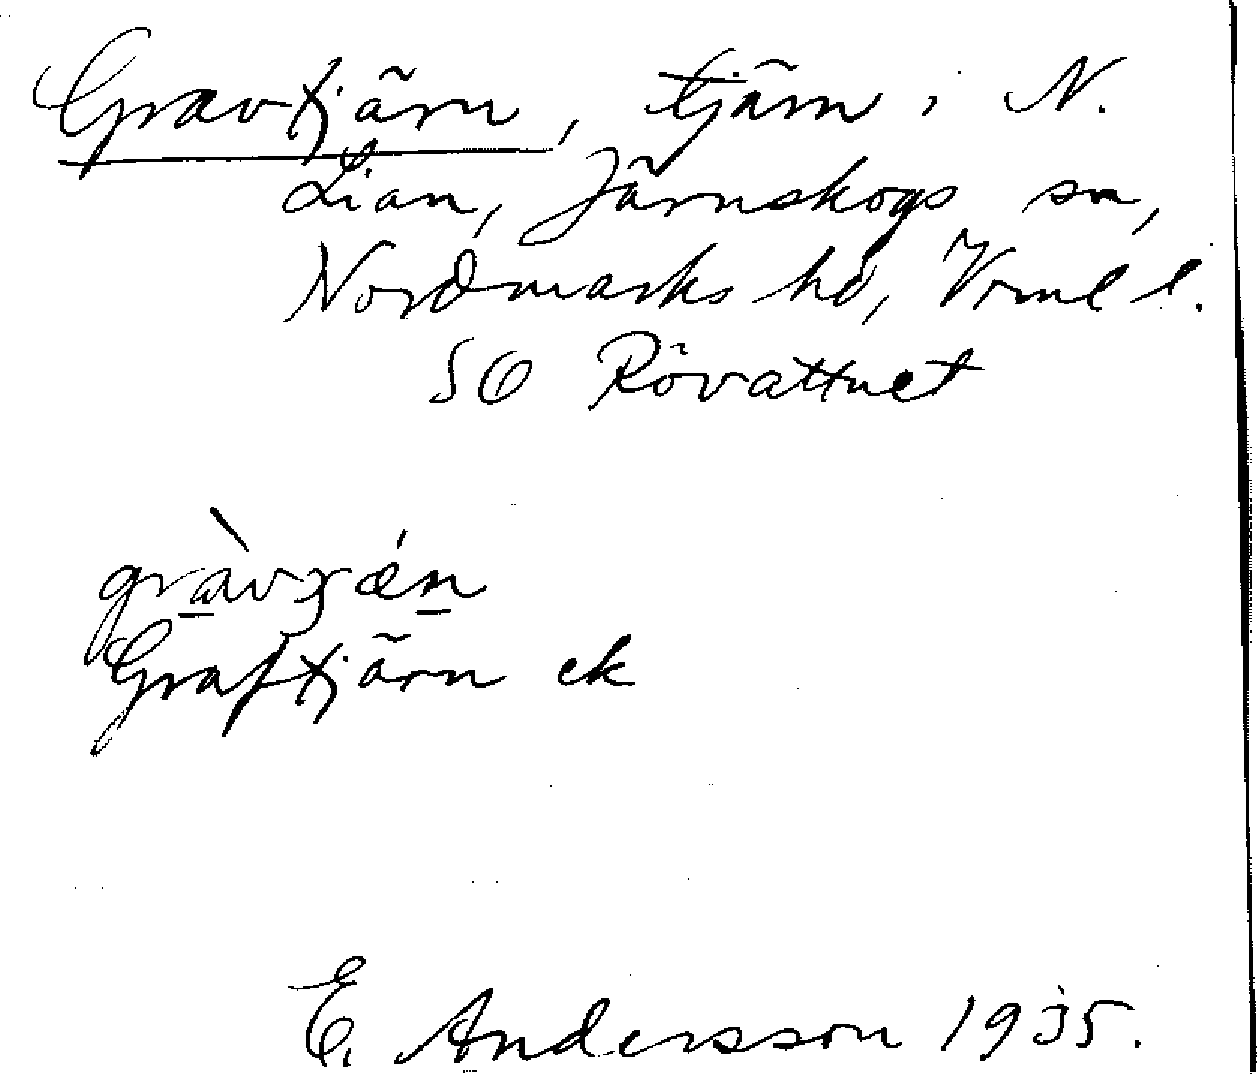 Gravtjärn, tjärn i N.
Lian, Järnskogs sn,
Nordmarks hd, Vrml l.
SO Rövattnet
Graftjärn ek
E. Andersson 1935.